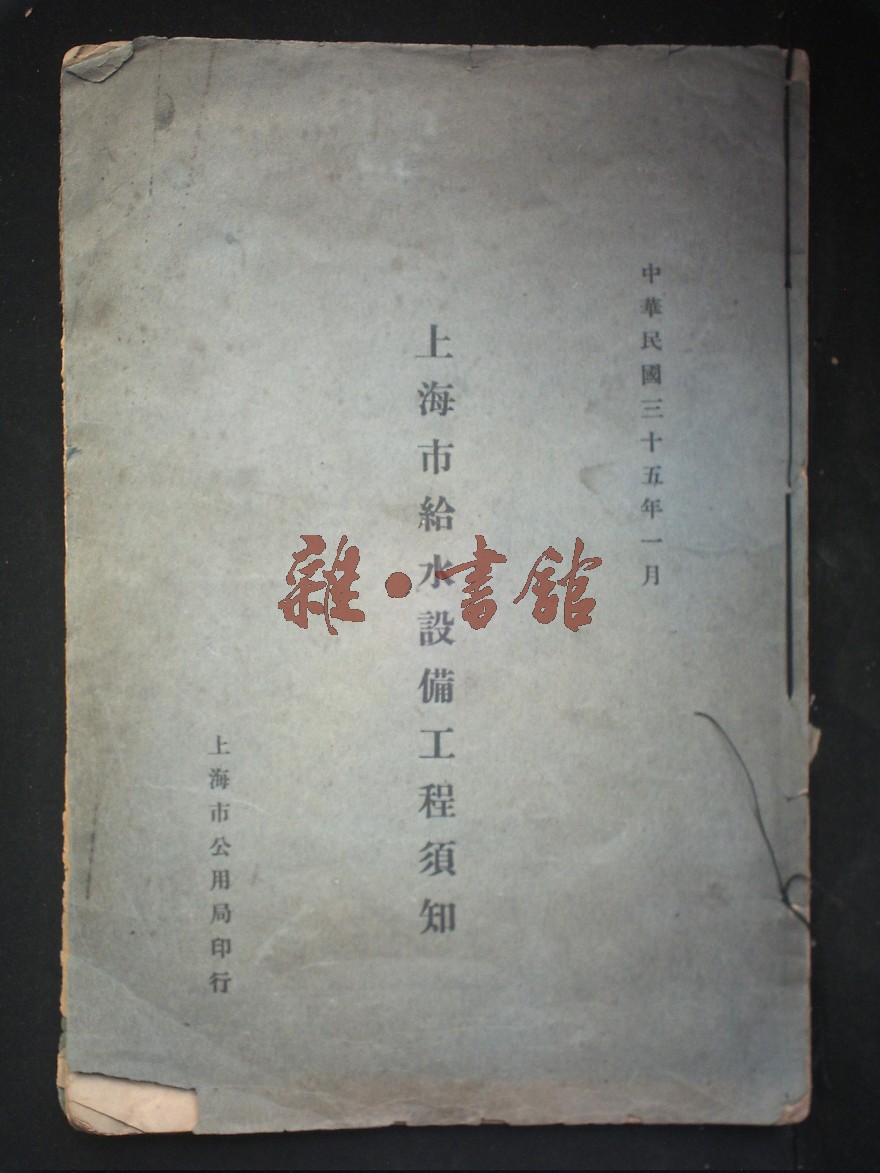 中華民國三十五年一月
上海市給水設備工程須知
上海市公用局印行
雜·書館